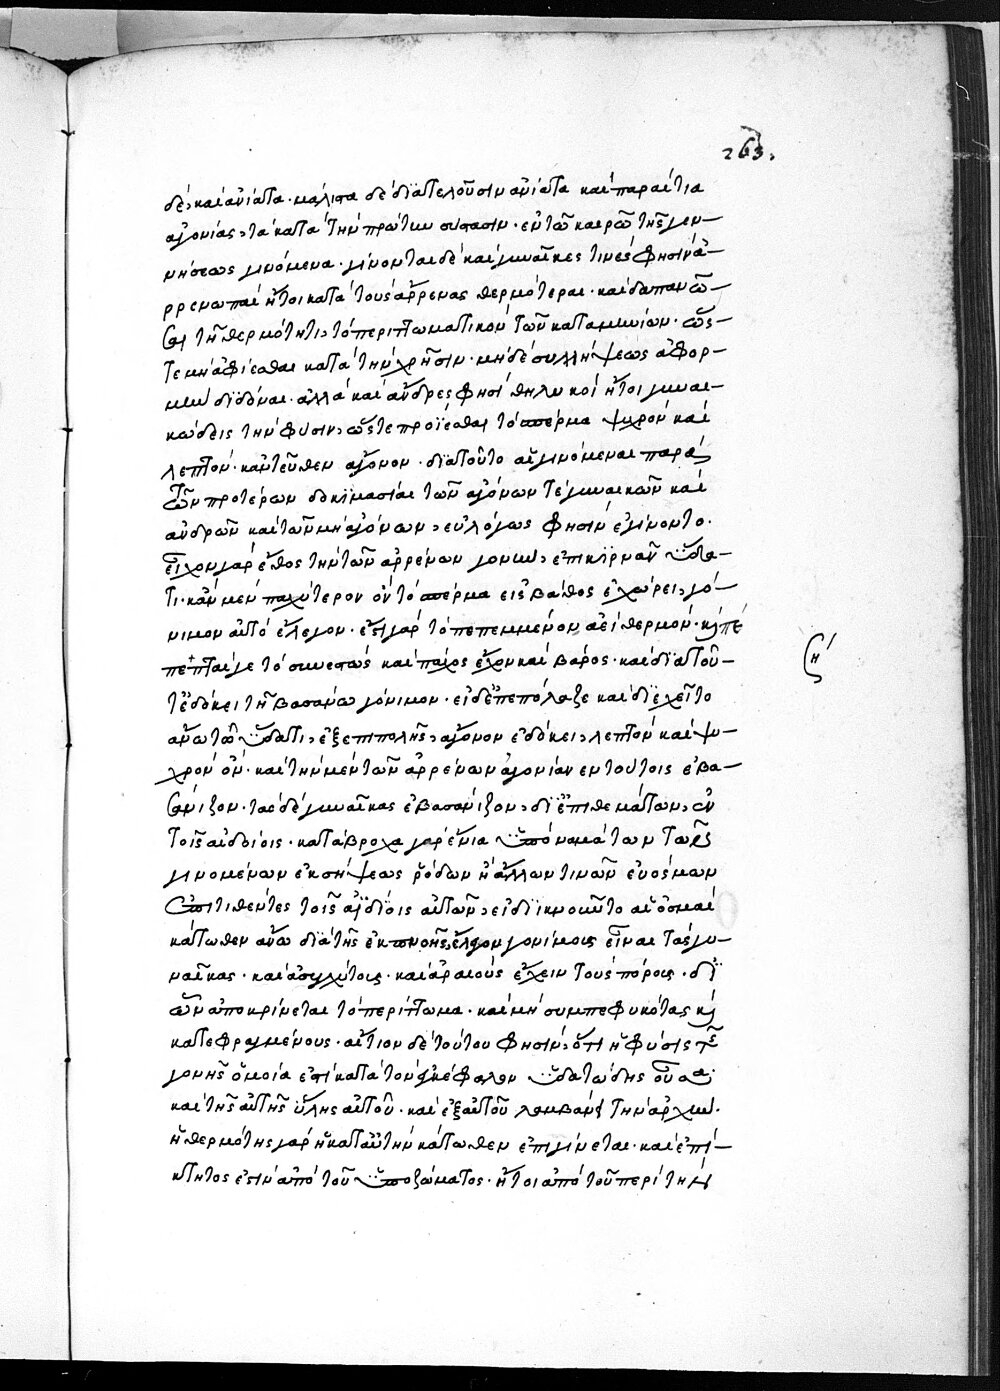 263.
δὲ, καὶ ἀνίατα. μάλιστα δὲ διατελοῦσιν ἀνίατα καὶ παραίτια
ἀγονίας, τὰ κατὰ τὴν πρώτην σύστασιν. ἐν τῶ καιρῶ τῆς γεν-
νήσεως γινόμενα. γίνονται δὲ καὶ γυναῖκες τινὲς φησὶν ἀ-
ρρενωπαὶ ἤτοι κατὰ τοὺς ἄρρενας θερμότεραι. καὶ δαπανῶ-
σαι τῆ θερμότητι, τὸ περιττωματικὸν τῶν καταμηνίων. ὥς-
τε μὴ ἀφίεσθαι κατὰ τὴν χρῆσιν. μὴ δὲ συλλήψεως ἀφορ-
μὴν διδόναι. ἀλλὰ καὶ ἄνδρες φησὶ θηλυκοὶ ἤτοι γυναι-
κώδεις τὴν φύσιν, ὥςτε προΐεσθαι τὸ σπέρμα ψυχρὸν καὶ
λεπτὸν. κἀντεῦθεν ἄγονον. διατοῦτο αἱ γινόμεναι παρὰ
τῶν προτέρων δοκιμασίαι τῶν ἀγόνων τε γυναικῶν καὶ
ἀνδρῶν καὶ τῶν μὴ ἀγόνων, εὐλόγως φησὶν ἐγίνοντο.
εἶχον γὰρ ἔθος τὴν τῶν ἀρρένων γονὴν, ἐπικιρνᾶν ὕδα-
τι. κἂν μὲν παχύτερον ὂν τὸ σπέρμα εἰς βάθος ἐχώρει, γό-
νιμον αὐτὸ ἔλεγον. ἔστι γὰρ τὸ πεπεμμένον ἀεὶ θερμὸν. καὶ πέ
πεπταί γε τὸ συνεστὼς καὶ πάχος ἔχον καὶ βάρος. καὶ διατοῦ-
τ' ἐδόκει τῆ βασάνω γόνιμον. εἰ δ' ἐπεπόλαζε καὶ διεχεῖτο
ἄνω τῶ ὕδατι, ἐξεπιπολῆς, ἄγονον ἐδόκει, λεπτὸν καὶ ψυ-
χρὸν ὂν. καὶ τὴν μὲν τῶν ἀρρένων ἀγονίαν ἐν τούτοις ἐβα-
σάνιζον. τὰς δὲ γυναῖκας ἐβασάνιζον, δι' ἐπιθεμάτων, ἐν
τοῖς αἰδοίοις. κατάβροχα γὰρ ἔνια ὑπὸ ναμάτων τῶν
γινομένων ἐκσήψεως ῥόδων ἢ ἄλλων τινῶν εὐόσμων
ἐπιτιθέντες τοῖς αἰδοίοις αὐτῶν, εἰ διϊκνοῦντο αἱ ὀσμαὶ
κάτωθεν ἄνω διὰ τῆς ἐκπνοῆς, ἔλεγον γονίμους εἶναι τὰς γυ-
ναῖκας. καὶ ἀσυγχύτους. καὶ ἀραιοὺς ἔχειν τοὺς πόρους. δι'
ὧν ἀποκρίνεται τὸ περίττωμα. καὶ μὴ συμπεφυκότας καὶ
καταπεφραγμένους. αἴτιον δὲ τούτου φησὶν, ὅτι ἡ φύσις τῆς
γονῆς ὁμοία ἐστὶ κατὰ τὸν ἐγκέφαλον ὑδατώδης οὖσα
καὶ τῆς αὐτῆς ὕλης αὐτοῦ. καὶ ἐξαυτοῦ λαμβάνει τὴν ἀρχὴν.
ἡ θερμότης γὰρ ἡ κατ' αὐτὴν κάτωθεν ἐπιγίνεται. καὶ ἐπί-
κτητος ἐστὶν ἀπὸ τοῦ ὑποζώματος. ἤτοι ἀπὸ τοῦ περὶ τὴν